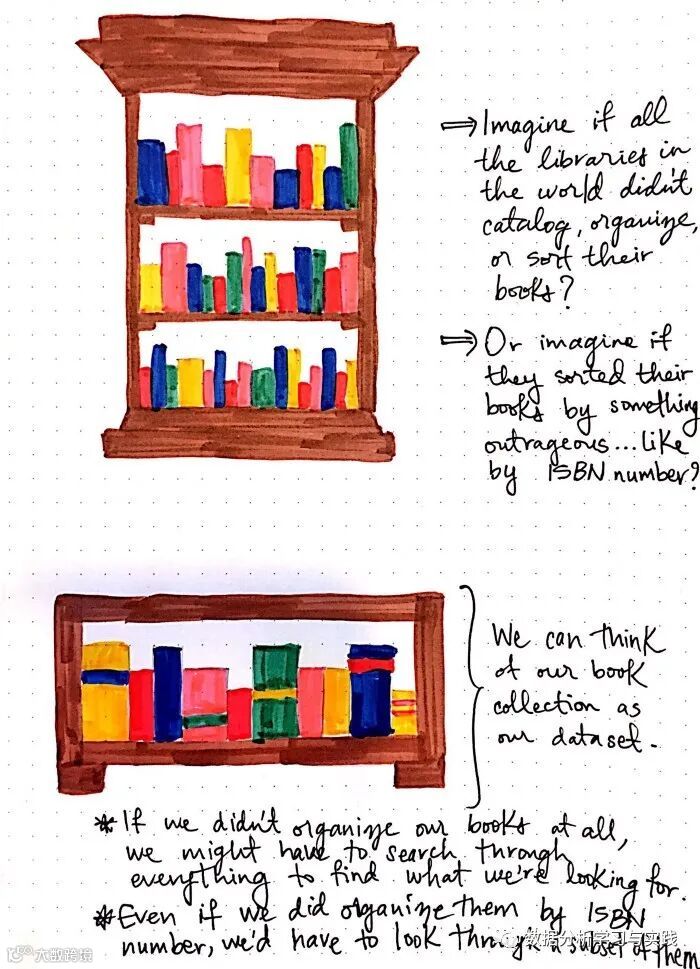 ⇒ Imagine if all
the libraries in
the world didn't
catalog, organize,
or sort their
books?
⇒ Or imagine if
they sorted their
books by something
outrageous...like
by ISBN number?
We can think
of our book
collection as
our dataset.
* If we didn't organize our books at all,
we might have to search through
everything to find what we're looking for.
* Even if we did organize them by ISBN
number, we'd have to look through a subset of them
大数跨境
数据分析学习与实践